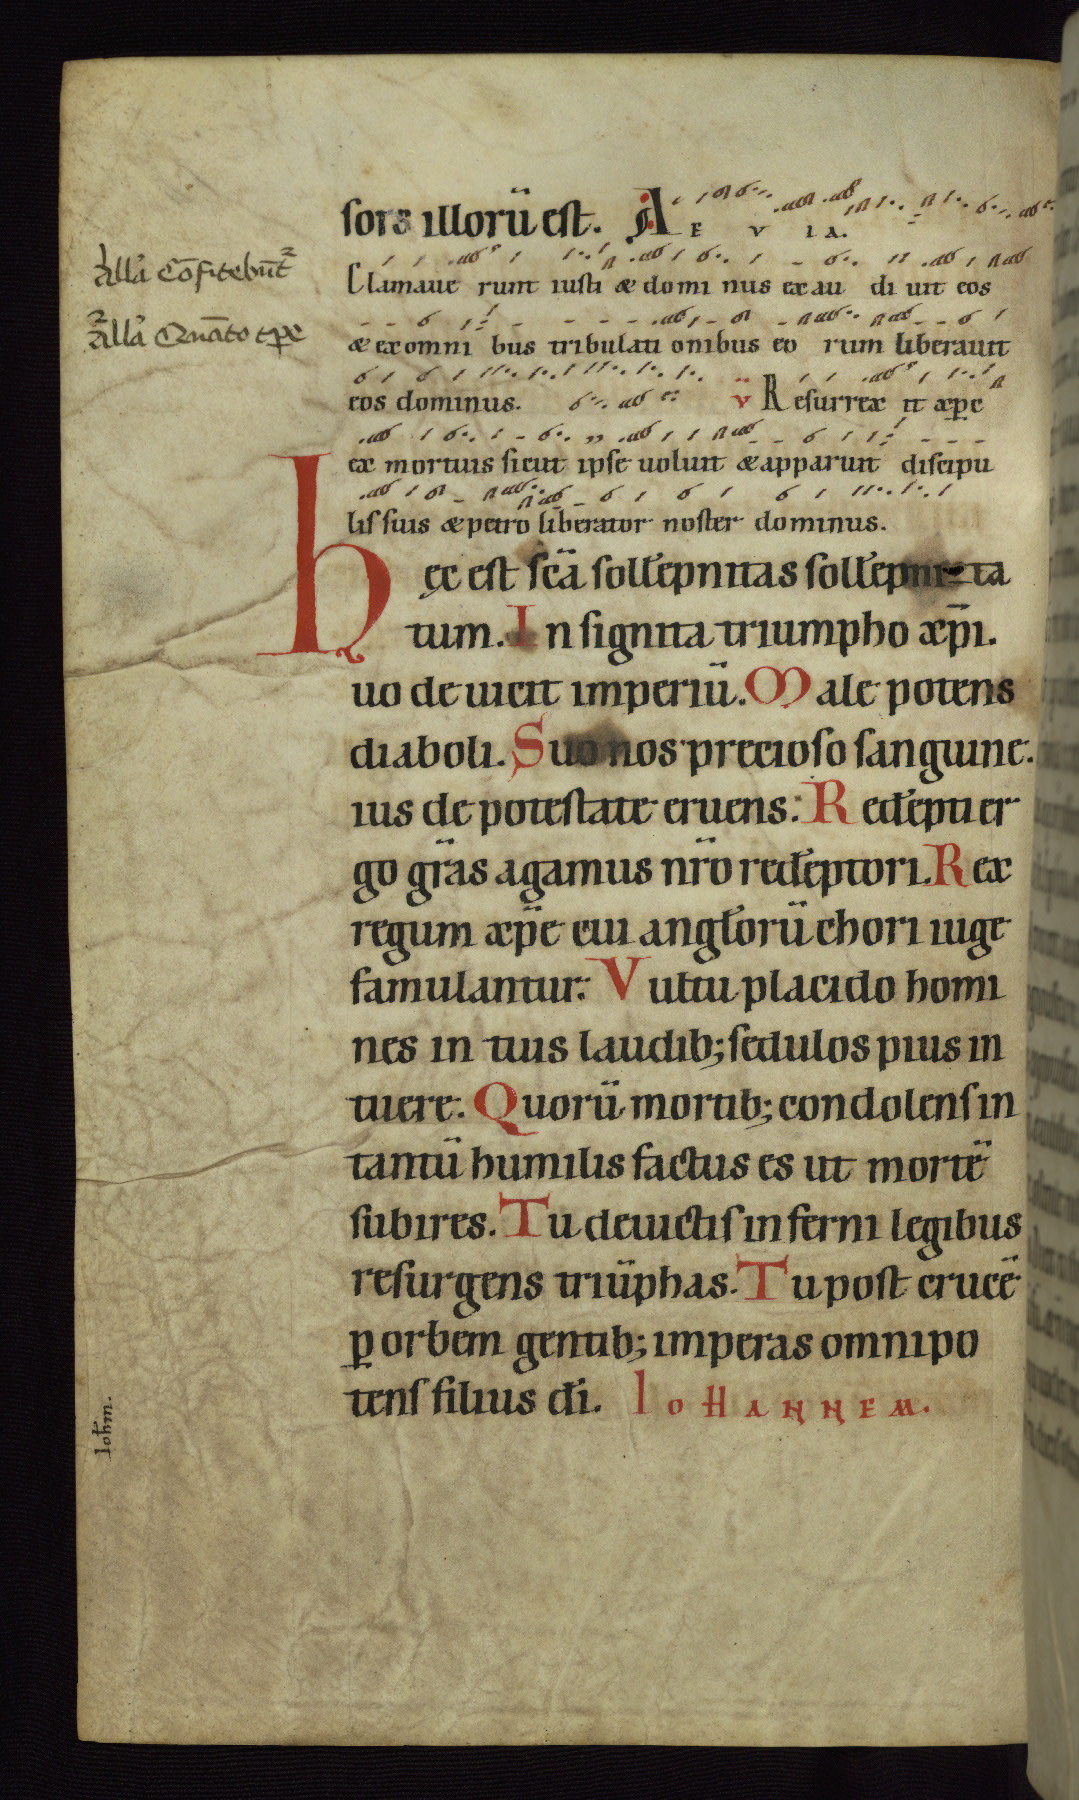 sors illorū est. AEVIA.
allā Cōfitebūt
Clamaue runt iusti & domi nus exau di uit eos
allā Quāto tꝑe
& ex omni bus tribulati onibus eo rum liberauit
eos dominus. v̈ Resurrex it &xp̄c
ex mortuis sicut ipse uoluit & apparuit discipu
lis suis & petro liberator noster dominus.
Hęc est sc̄a sollēpnitas sollēpnita
tum. Insignita triumpho xp̄i.
uo deuicit imperiū. Male potens
diaboli. Suo nos precioso sanguine.
ius de potestate eruens: Redēpti er
go grās agamus nr̄o redēptori. Rex
regum xp̄e cui anglorū chori iuge
famulantur: Vultu placido homi
nes in tuis laudib; sedulos pius in
tuere. Quorū mortib; condolens in
tantū humilis factus es ut mortē
subires. Tu deuictis inferni legibus
resurgens triūphas. Tu post crucē
ꝑ orbem gentib; imperas omnipo
tens filius dī. IOHANNEM.
Iohm.